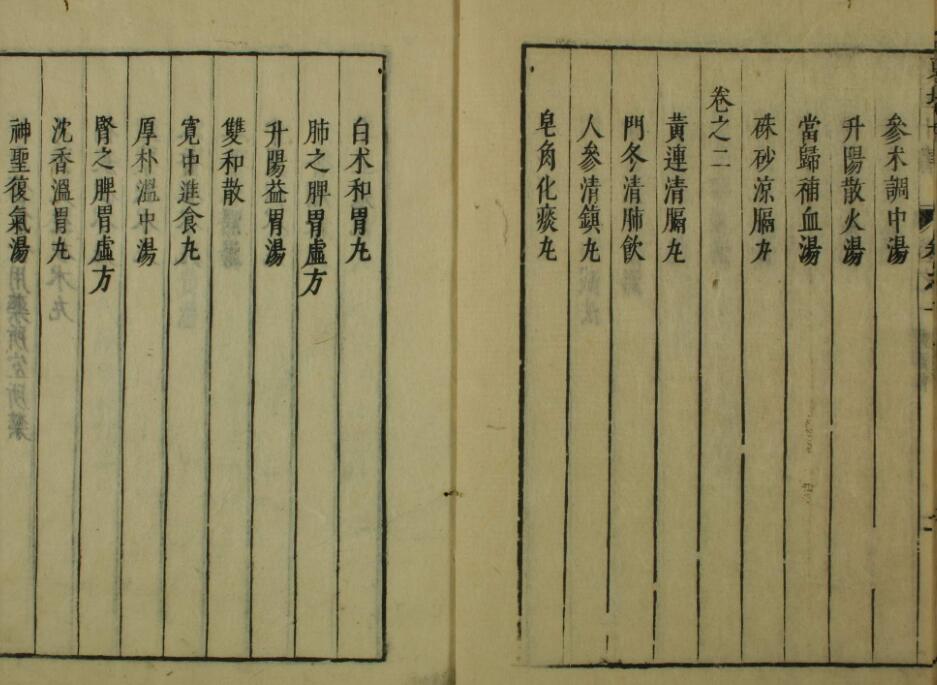 參术調中湯
升陽散火湯
當歸補血湯
硃砂涼膈丸
卷之二
黃連清膈丸
門冬清肺飲
人參清鎮丸
皂角化痰丸
白术和胃丸
肺之脾胃虛方
升陽益胃湯
雙和散
寬中進食丸
厚朴溫中湯
腎之脾胃虛方
沈香溫胃丸
神聖復氣湯